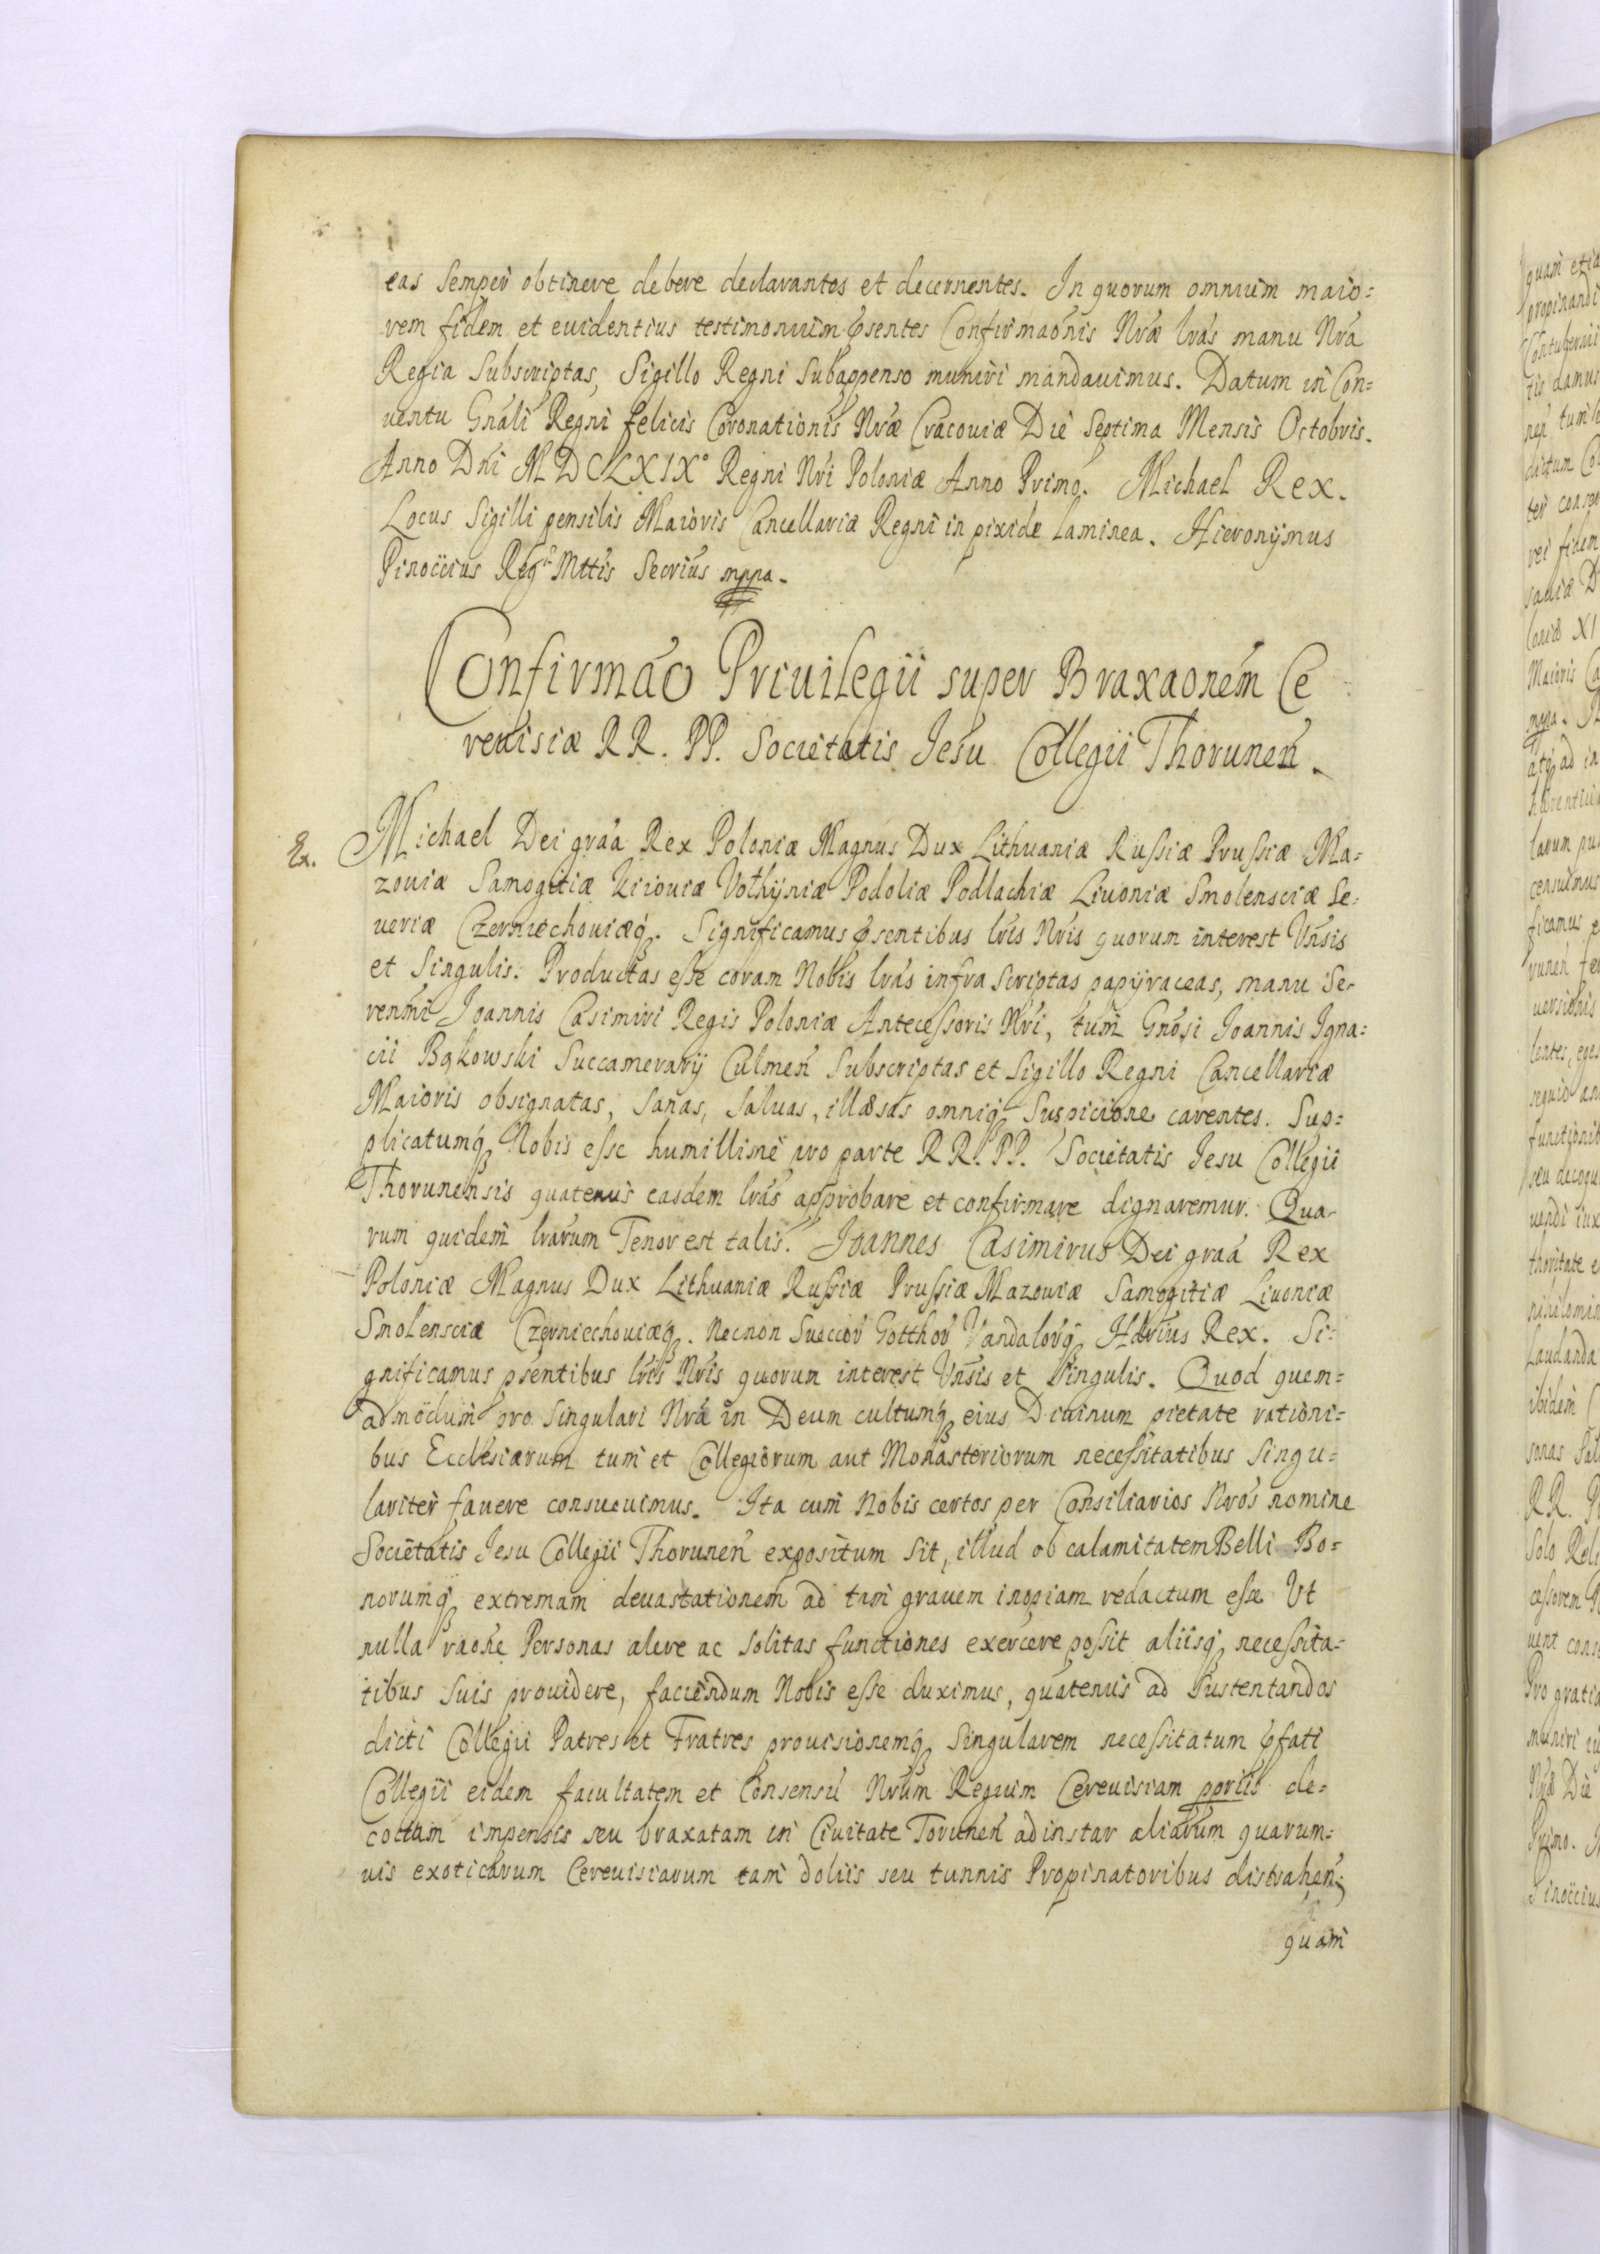 eas semper obtinere debere declarantes et decernentes. In quorum omnium maio=
rem fidem et euidentius testimonium pſentes Confirmaõnis Nrǽ lrás manu Nrá
Regia Subscriptas, Sigillo Regni Subappenso muniri mandauimus. Datum in Con=
uentu Gnáli Regni felicis Coronationis Nrǽ Cracouiæ Die Septima Mensis Octobris.
Anno Dńi MDCLXIX° Regni Nri Poloniæ Anno Primo. Michael Rex.
Locus Sigilli pensilis Maioris Cancellariæ Regni in pixide laminea. Hieronÿmus
Pinoccius Reg Mttis Secrius mppa.
Confirmaõ Priuilegii super Braxaonem Ce
reuisiæ RR. PP. Societatis Jesu Collegii Thorunen̄.
Ex. Michael Dei graá Rex Poloniæ Magnus Dux Lithuaniæ Russiæ Prussiæ Ma=
zouiæ Samogitiæ Kijouiæ Volhÿniæ Podoliæ Podlachiæ Liuoniæ Smolensciæ Se=
ueriæ Czerniechouiæq́. Significamus pſentibus lris Nris quorum interest Vnsis
et Singulis. Productas esse coram Nobis lrás infra scriptas papÿraceas, manu Se=
renmi Joannis Casimiri Regis Poloniæ Antecessoris Nri, tum Gnosi Joannis Igna=
cii Bąkowski Succamerarÿ Culmen̄ Subscriptas et Sigillo Regni Cancellariæ
Maioris obsignatas, sanas, saluas, illæsas omniq́ Suspicione carentes. Sup=
plicatumq́ Nobis esse humillime pro parte RR. PP. Societatis Jesu Collegii
Thorunensis quatenus easdem lrás approbare et confirmare dignaremur. Qua=
rum quidem lrarum Tenor est talis. Joannes Casimirus Dei graá Rex
Poloniæ Magnus Dux Lithuaniæ Russiæ Prussiæ Mazouiæ Samogitiæ Liuoniæ
Smolensciæ Czerniechouiæq́. Necnon Sueccor Gotthor Vandalorq́ Hdrius Rex. Si=
gnificamus pſentibus lris Nris quorum interest Vnsis et Singulis. Quod quem=
admodum pro Singulari Nrá in Deum cultumq́ eius Diuinum pietate rationi=
bus Ecclesiarum tum et Collegiorum aut Monasteriorum necessitatibus Singu=
lariter fauere consueuimus. Ita cum Nobis certos per Consiliarios Nros nomine
Societatis Jesu Collegii Thorunen̄ expositum sit, illud ob calamitatem Belli Bo=
norumq́ extremam deuastationem ad tam grauem inopiam redactum esse Vt
nulla raoñe Personas alere ac solitas functiones exercere possit aliisq́ necessita=
tibus suis prouidere, faciendum Nobis esse duximus, quatenus ad Sustentandos
dicti Collegii Patres et Fratres prouisionemq́ Singularem necessitatum pfati
Collegii eidem facultatem et Consensu Nrum Regium Cereuisiam ppriis de=
coctam impensis seu braxatam in Ciuitate Torunen̄ ad instar aliarum quarum=
uis exoticarum Cereuisiarum tam doliis seu tunnis Propinatoribus distrahen;
quam